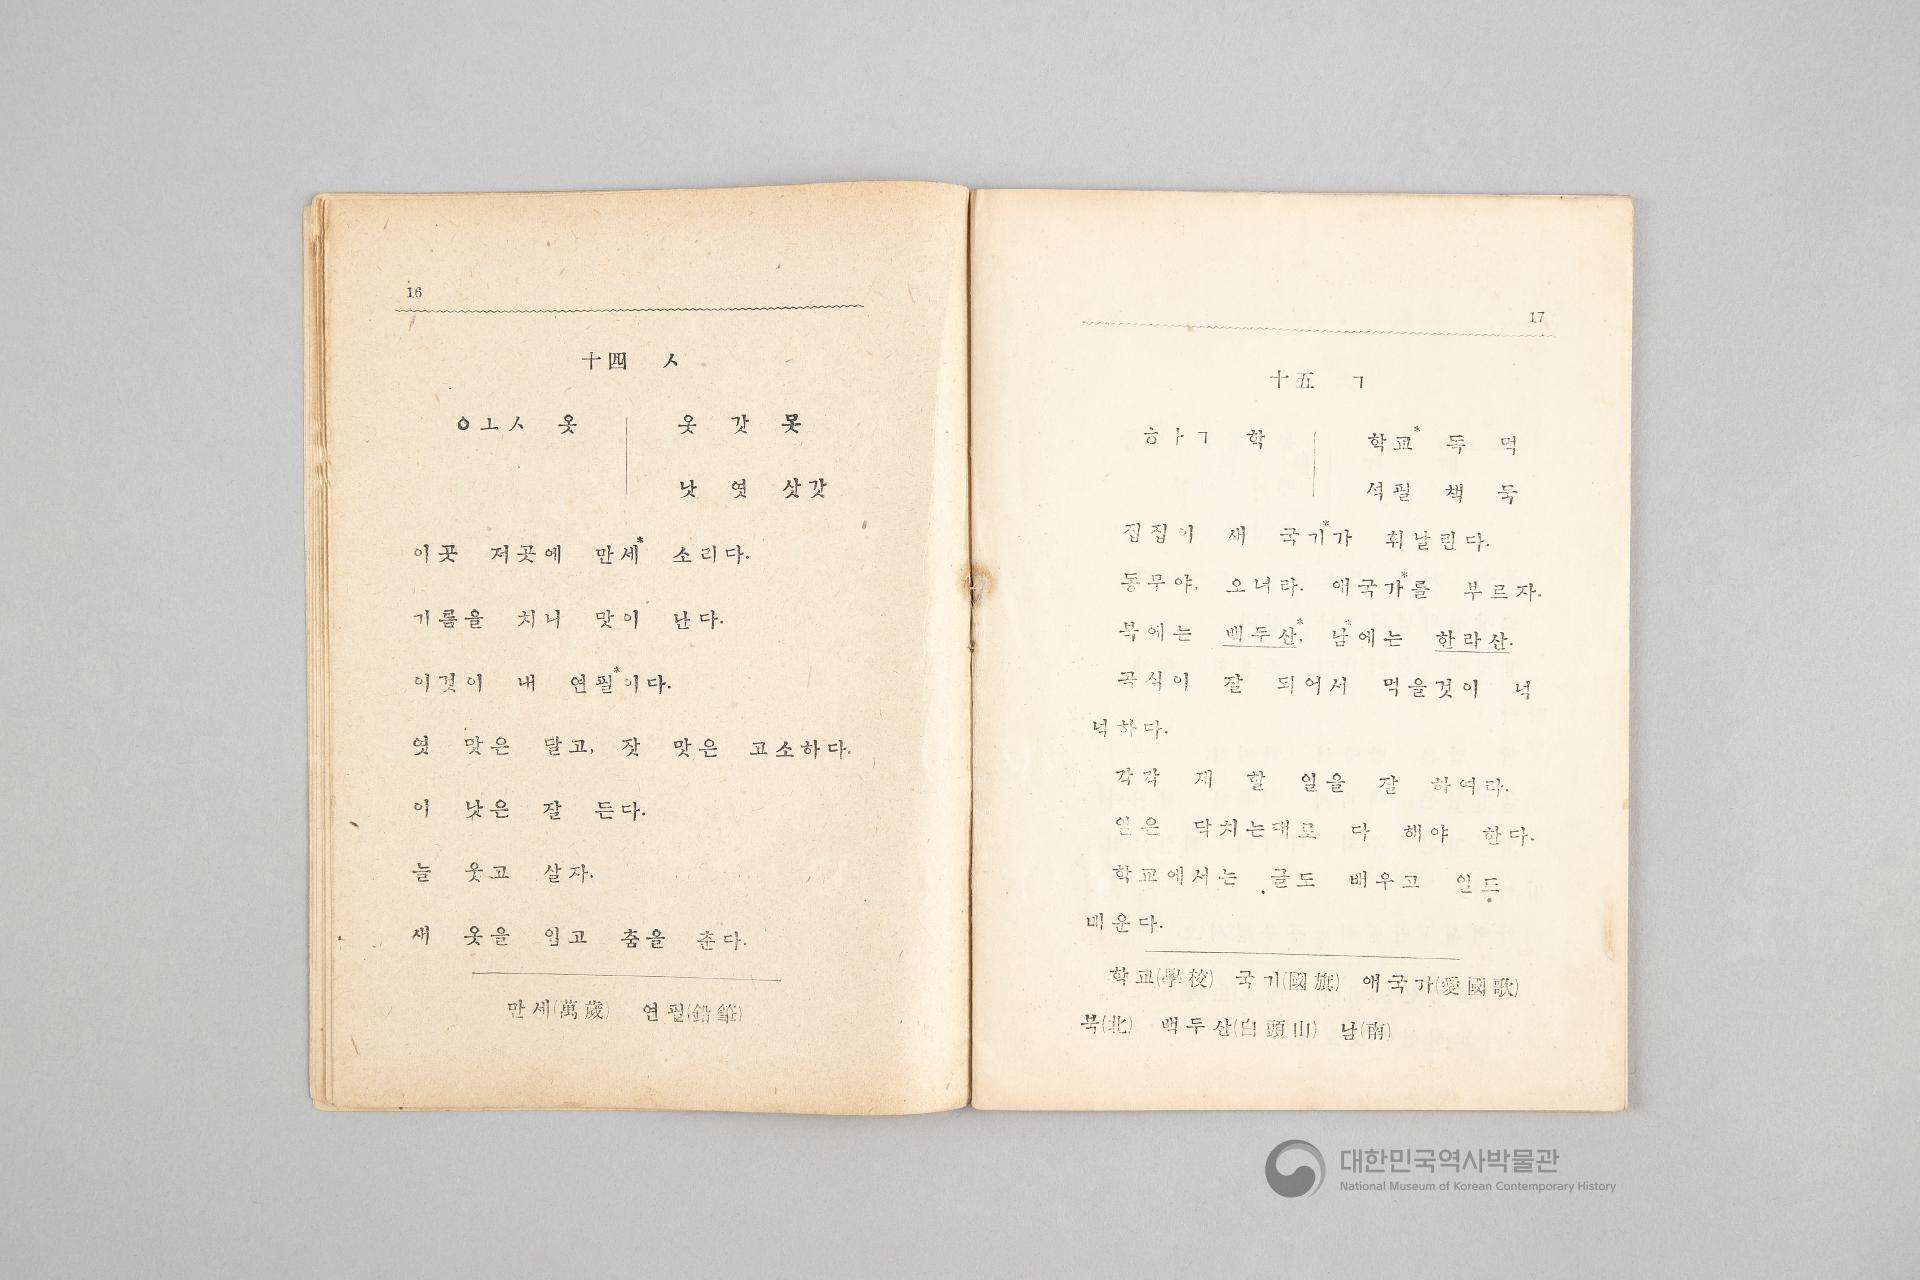 16
十四 ㅅ
ㅇㅗㅅ 옷 옷 갓 못
낫 엿 삿갓
이곳 저곳에 만세* 소리다.
기름을 치니 맛이 난다.
이것이 내 연필*이다.
엿 맛은 달고, 잣 맛은 고소하다.
이 낫은 잘 든다.
늘 웃고 살자.
새 옷을 입고 춤을 춘다.
만세(萬歲) 연필(鉛筆)
17
十五 ㄱ
ㅎㅏㄱ 학 학교* 독 먹
석필 책 묵
집집이 새 국기*가 휘날린다.
동무야, 오너라. 애국가*를 부르자.
북에는 백두산*, 남*에는 한라산.
곡식이 잘 되어서 먹을것이 넉
넉하다.
각각 제 할 일을 잘 하여라.
일은 닥치는대로 다 해야 한다.
학교에서는 글도 배우고 일도
배운다.
학교(學校) 국기(國旗) 애국가(愛國歌)
북(北) 백두산(白頭山) 남(南)
대한민국역사박물관
National Museum of Korean Contemporary History